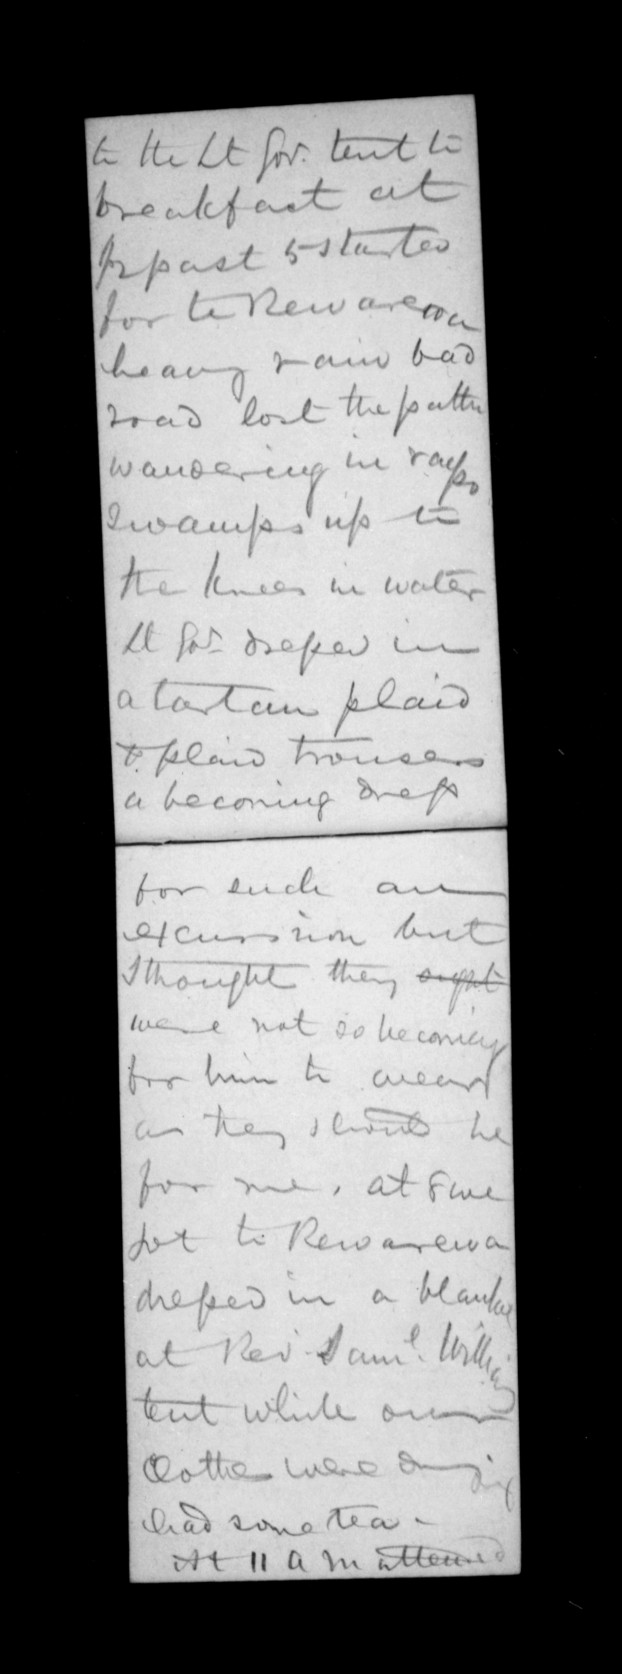 to the Lt Gov. tent to
breakfast at
½ past 5 started
for te Rewarewa
heavy rain bad
road lost the path
wandering in raupo
swamps up to
the knees in water
Lt Gov. dressed in
a tartan plaid
& plaid trousers
a becoming dress
for such an
excursion but
I thought they ought
were not so becoming
for him to wear
as they should be
for me, at 8 we
got to Rewarewa
dressed in a blanket
at Rev Saml. Williams
tent while our
Clothes were drying
had some tea -
At 11 a m attended